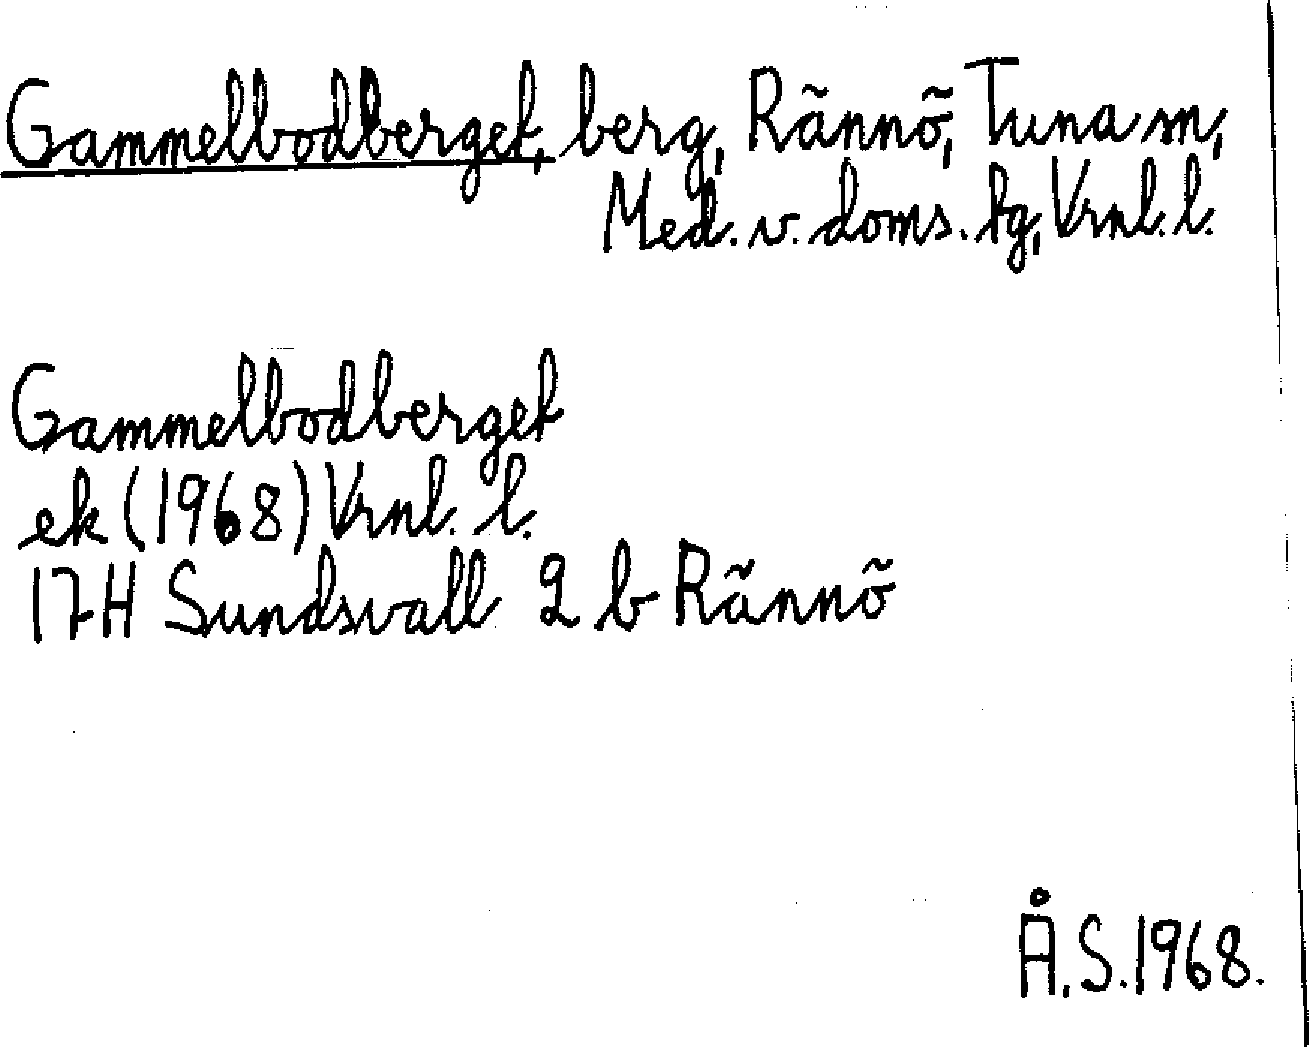 Gammelbodberget, berg, Rännö, Tuna sn,
Med. v. doms. tg, Vrnl. l.
Gammelbodberget
ek (1968) Vrnl. l.
17H Sundsvall 2 b Rännö
Å.S. 1968.